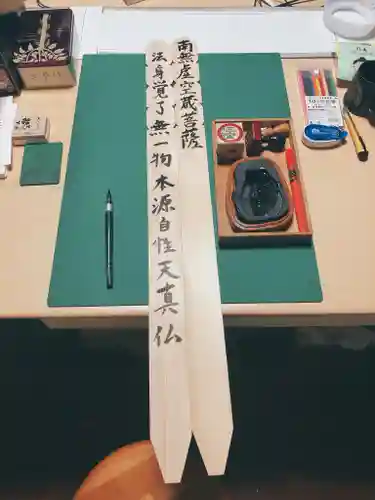 南無虚空蔵菩薩
法身覚了無一物本源自性天真仏